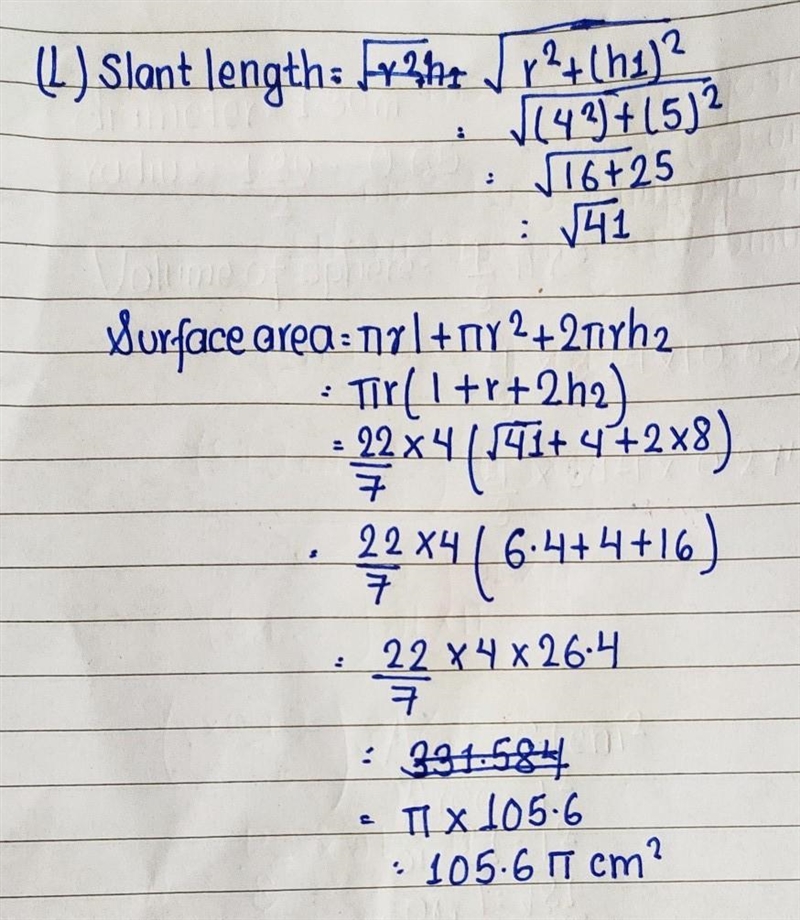 (L) Slant length = √r²+h₁ √r²+(h1)²
: √(4²)+(5)²
: √16+25
: √41
Surface area = πrl+πr²+2πrh₂
= πr(l+r+2h₂)
= 22/7 × 4 (√41+4+2×8)
. 22/7 ×4 ( 6.4+4+16)
= 22/7 × 4 × 26.4
: 331.584
= π × 105.6
: 105.6 π cm²